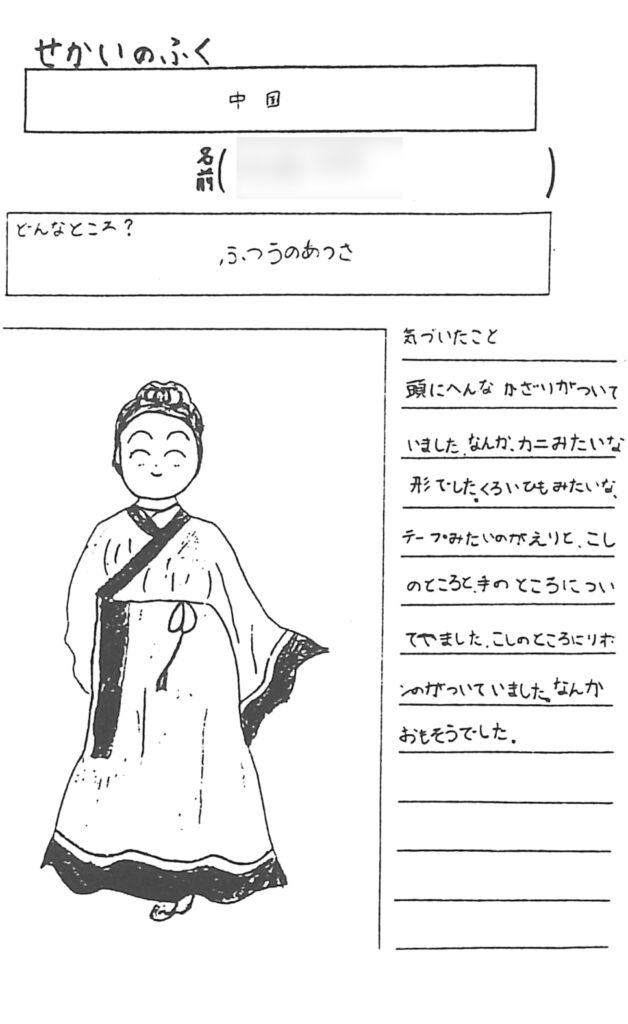 せかいのふく
中国
名前( )
どんなところ?
ふつうのあつさ
気づいたこと
頭にへんな かざりがついて
いました.なんか、カニみたいな
形でした。くろいひもみたいな、
テープみたいのがえりと、こし
のところと、手の ところについ
てやました。こしのところにリボ
ンのがついていました。なんか
おもそうでした。